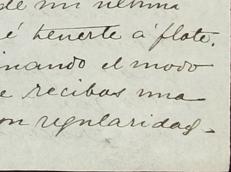 de mi última
é tenerte á flote.
inando el modo
e recibas una
on regularidad.